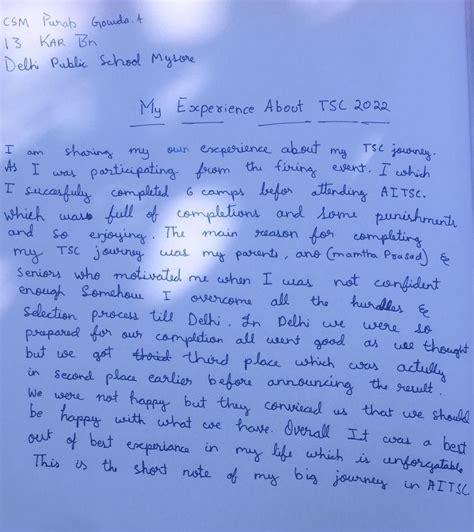 CSM Purab Gowda.A
13 KAR Bn
Delhi Public School Mysore
My Experience About TSC 2022
I am sharing my own excperience about my TSC journey.
As I was participating from the firing event. I which
I succesfuly completed 6 camps befor attending AITSC.
which was full of completions and some punishments
and so enjoying. The main reason for completing
my TSC journey was my parents, ano (mamtha Prasad) &
Seniors who motivated me when I was not confident
enough Somehow I overcome all the hurdles &
Selection process till Delhi. In Delhi we were so
prepared for our completion all went good as we thought
but we got third third place which was actully
in second place earlier before announcing the result.
We were not happy but they convicead us that we should
be happy with what we have. Overall It was a best
out of best experiance in my life which is unforgatable
This is the short note of my big journey in AITSC.